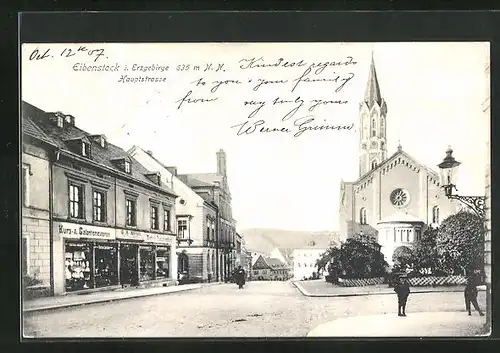 Oct. 12th 07.
Eibenstock i. Erzgebirge 635 m N.N.
Hauptstrasse
Kindest regards
to you & your family
from
very truly yours
Werner Grimm
Kurz- u. Galanteriewaren